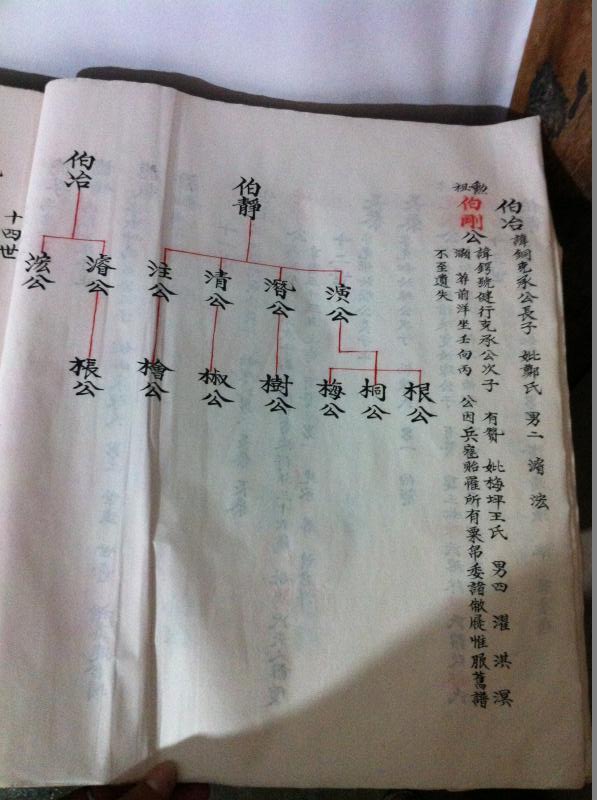 伯冶 諱鋼克承公長子 妣鄭氏 男二 濬 浤
勲祖
伯剛公
諱鍔號健行克承公次子 有贊 妣梅坪王氏 男四 濯 淇 溟
灝 葬前洋坐壬向丙 公因兵寇貽罹所有粟帛委諸敝屣惟服舊譜
不至遺失
伯靜
演公
潛公
清公
注公
根公
桐公
梅公
樹公
椒公
檜公
伯冶
濬公
浤公
棖公
十四世